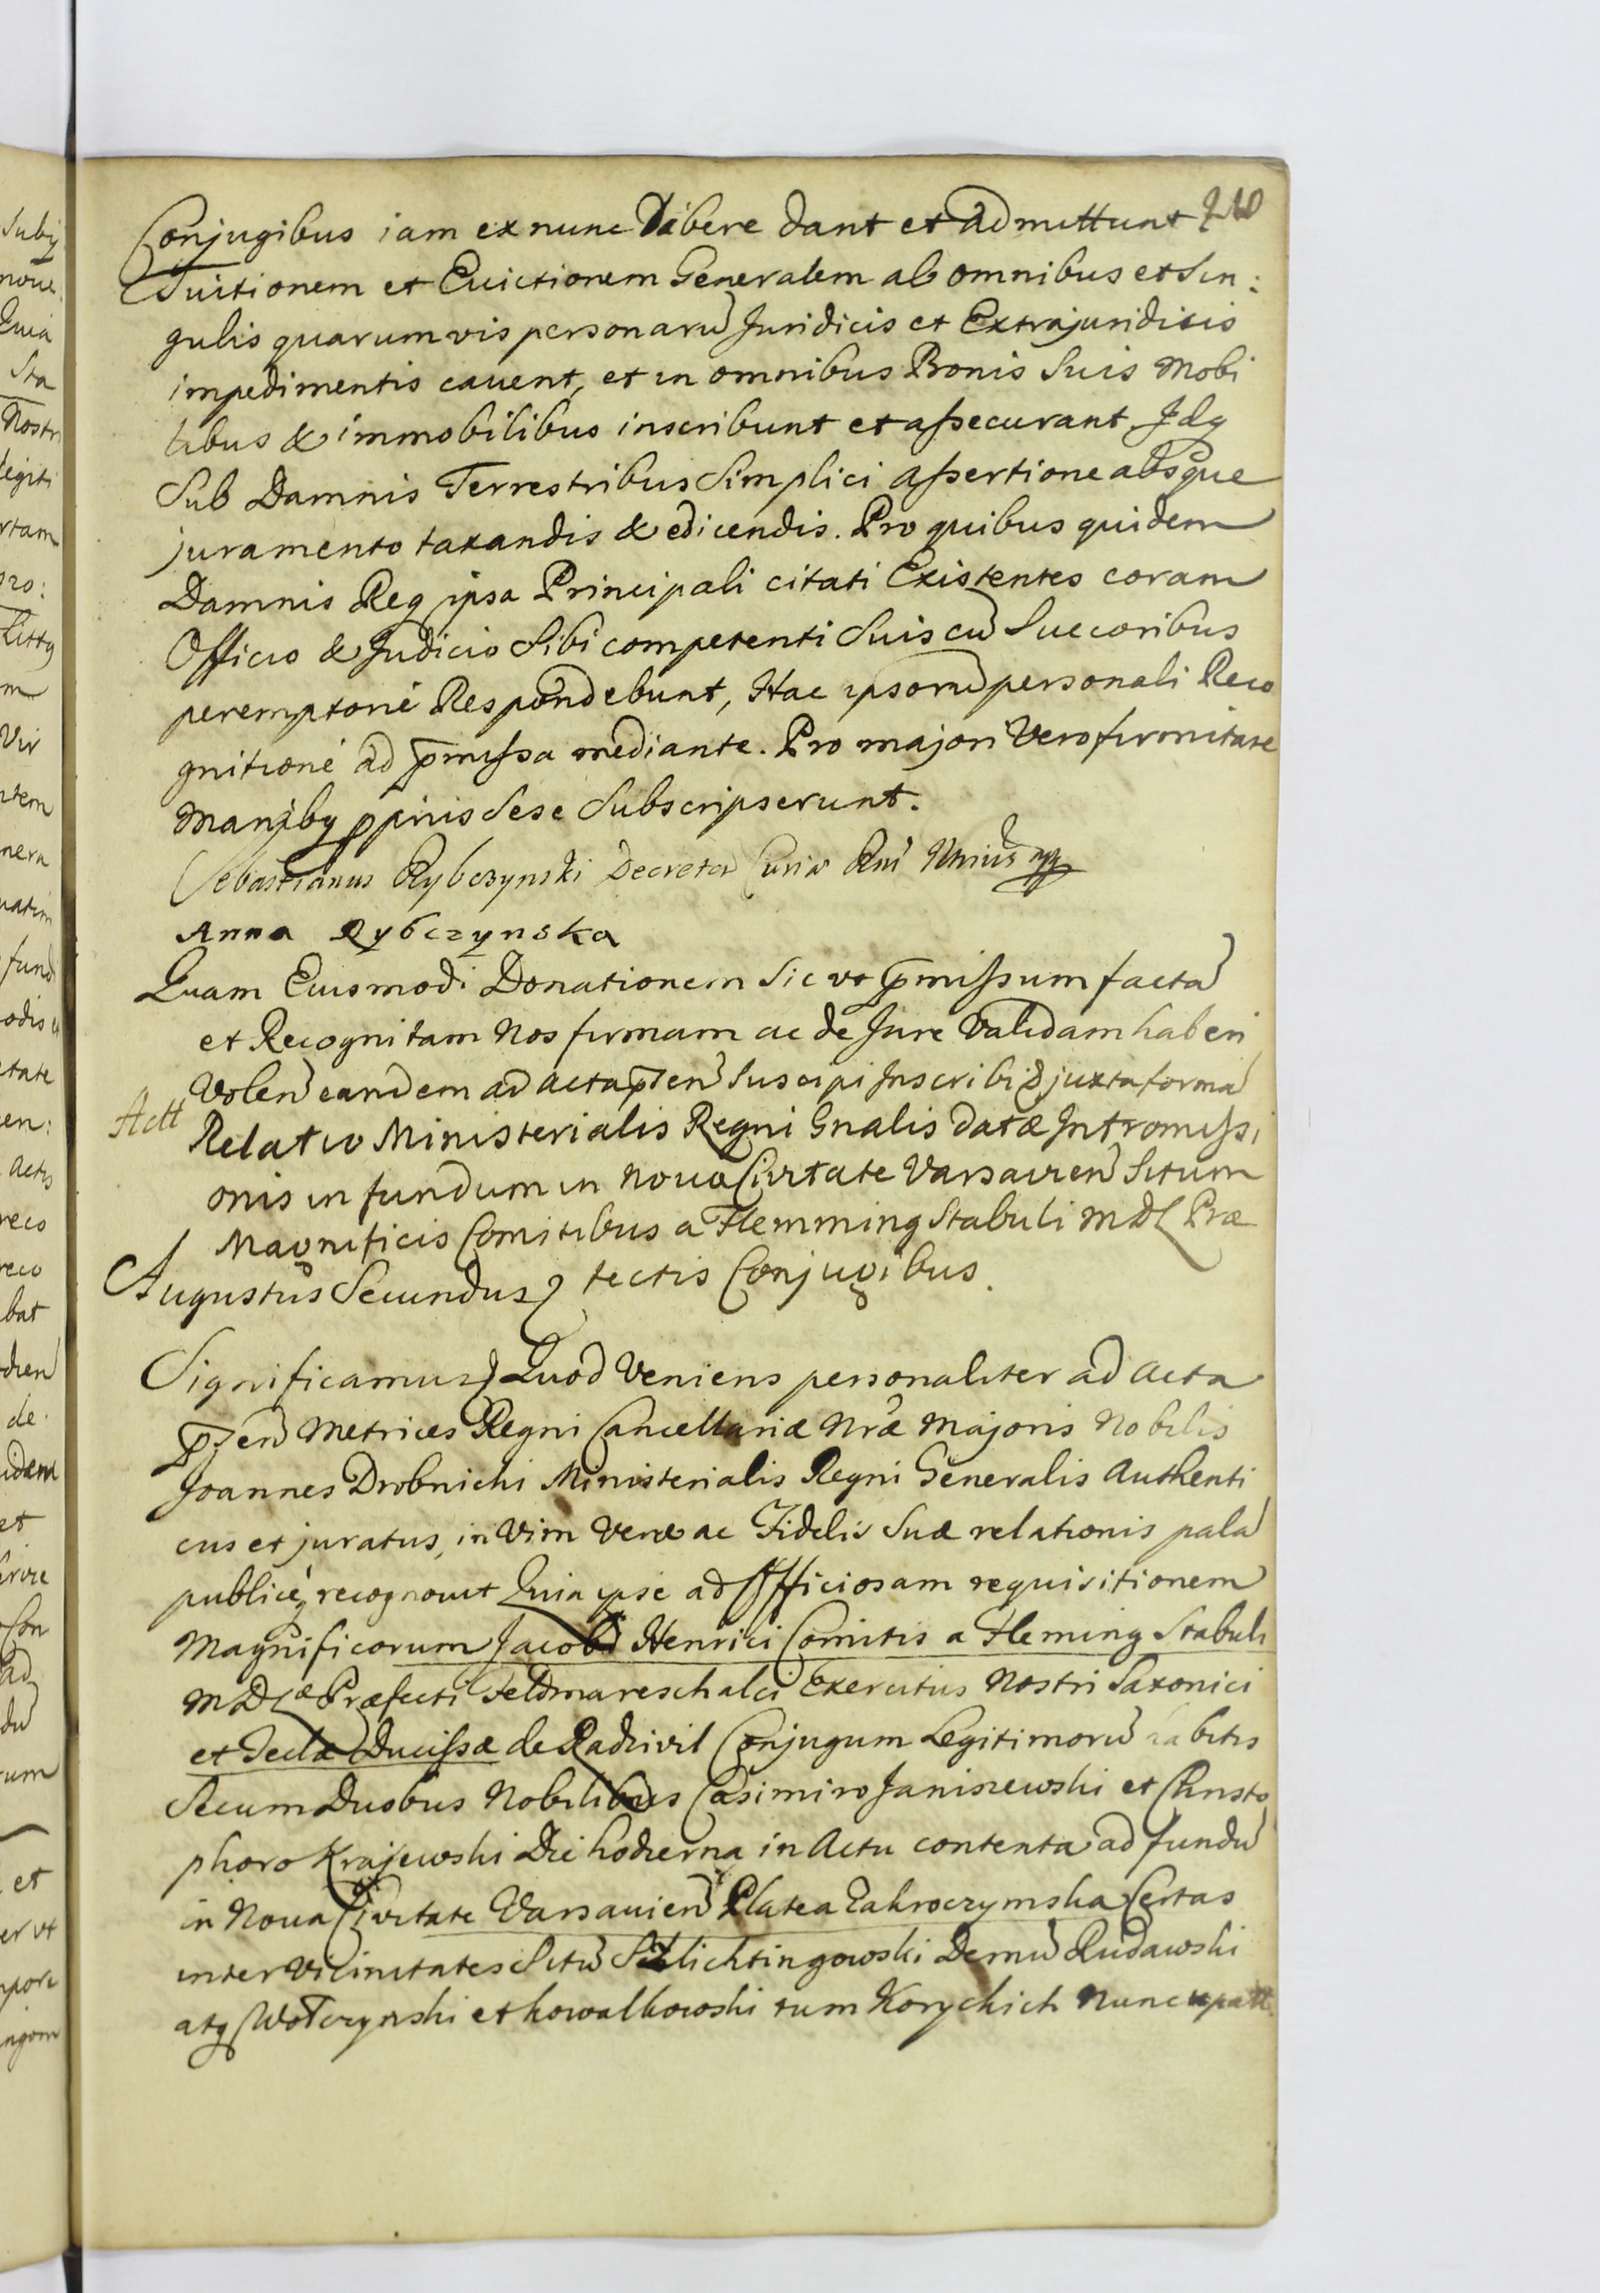 210
Conjugibus iam ex nunc Libere dant et admittunt
Tuitionem et Evictionem Generalem ab omnibus et Sin:
gulis quarumvis personarũ Juridicis et Extrajuridicis
impedimentis cavent, et in omnibus Bonis Suis Mobi
libus & immobilibus inscribunt et aſsecurant Idq
Sub Damnis Terrestribus Simplici aſsertione absque
juramento taxandis & edicendis. Pro quibus quidem
Damnis Req ipsa Principali citati Existentes coram
Officio & Judicio Sibi competenti Suis cũ Succoribus
peremptorié Respondebunt, Hac ipsorũ personali Reco
gnitioné ad p̄miſsa mediante. Pro majori Vero firmitate
Maniby pprijs Sese Subscripserunt.
Sebastianus Rybczynski Decretor Curiæ
Anna Rybczynska
Quam Eiusmodi Donationem Sic ut p̄miſsum factã
et Recognitam Nos firmam ac de Jure Validam haberi
Volen̄ eandem ad acta p̄sen̄ Suscipi Inscribi juxta formã
Actt
Relatio Ministerialis Regni Gnalis datæ Intromiſsi
onis in fundum in Noua Civitate Varsavien̄ Situm
Magnificis Comitibus a Flemming Stabuli MDL Præ
fectis Conjugibus.
Augustus Secundus
Significamus Quod Veniens personaliter ad Acta
p̄sen̄ Metrices Regni Cancellariæ Nræ Majoris Nobilis
Joannes Drobnichi Ministerialis Regni Generalis Authenti
cus et juratus, in Vim Veræ ac Fidelis Suæ relationis palã
publicé, recognouit Quia ipse ad Officiosam requisitionem
Magnificorum Jacobi Henrici Comitis a Fleming Stabuli
MDLæ Præfecti Feldmareschalci Exercitus Nostri Saxonici
et Teclæ Duciſsæ de Radzivil Conjugum Legitimorũ habitis
Secum Duobus Nobilibus Casimiro Janiszewski et Christo
phoro Krajewski Die hodierna in Actu contenta ad fundũ
in Noua Civitate Varsavien̄ Platea Zakroczymska Certas
inter Vicinitates Sitũ Szlichtingowski Demũ Rudawski
atq Wotczynski et kowalkowski tum Korychich Nuncupatt